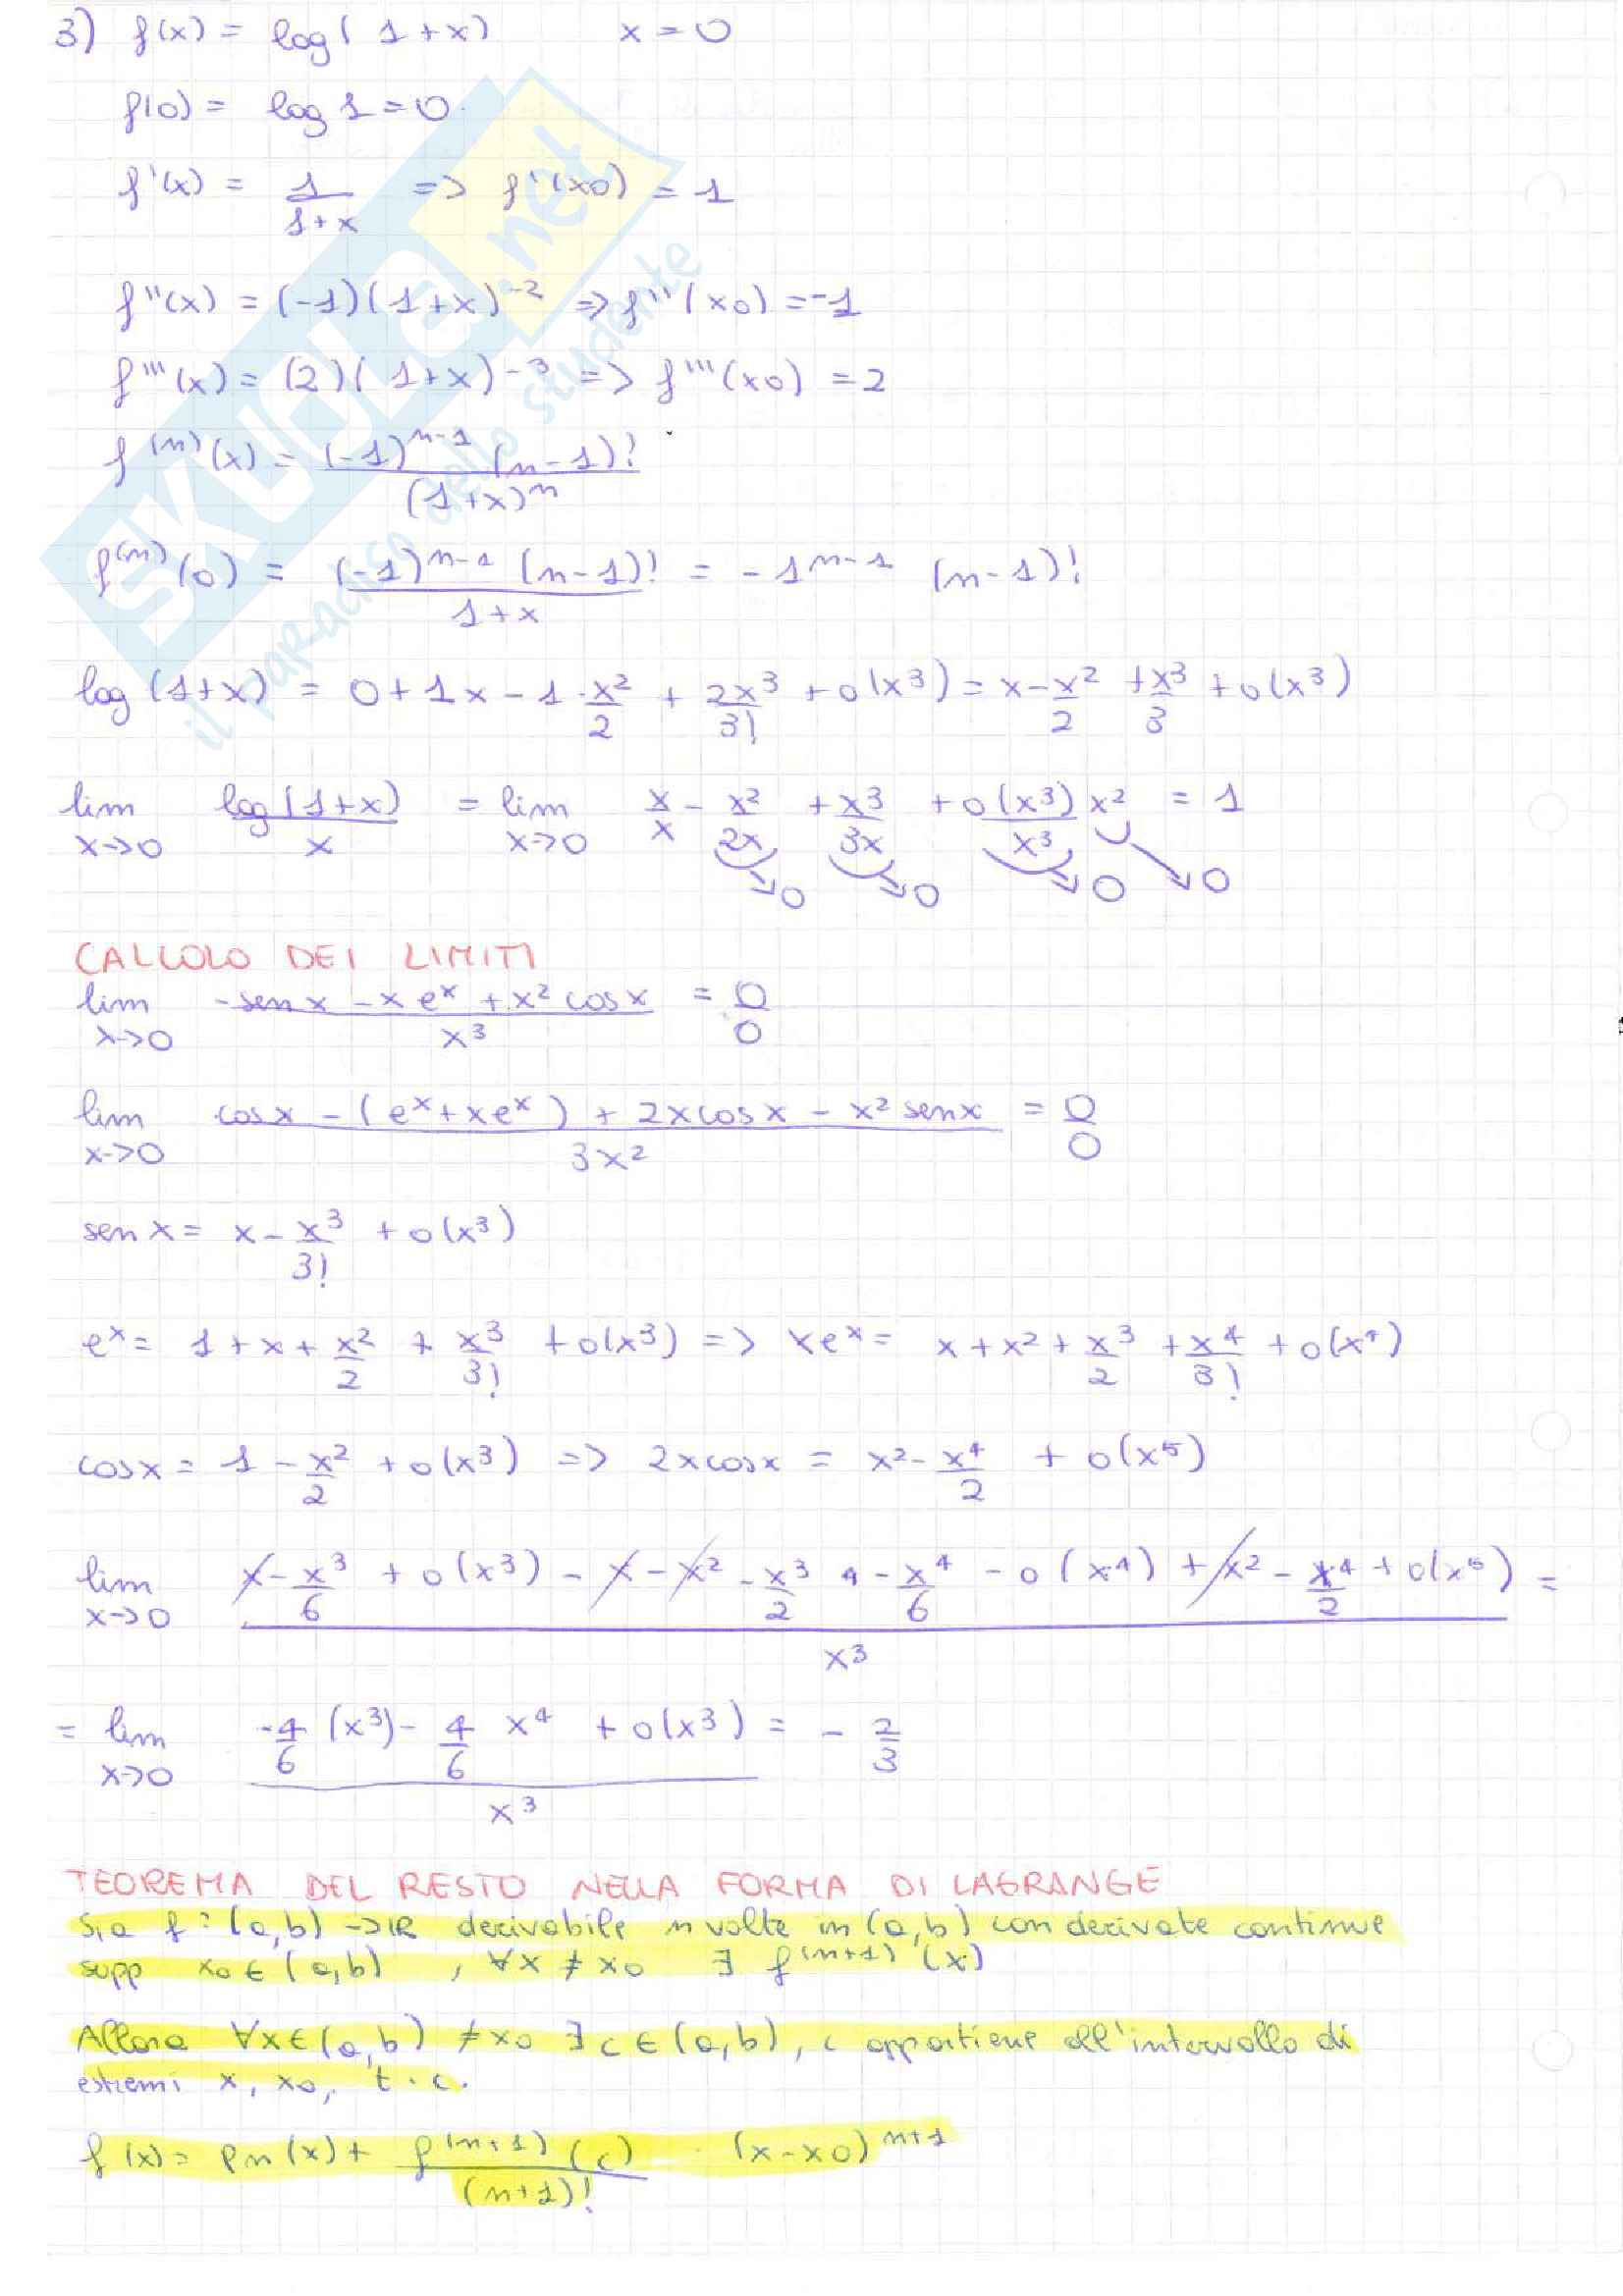 3) f(x) = log( 1+x) x=0
f(0) = log 1 = 0.
f'(x) = 1/(1+x) => f'(x0) = 1
f''(x) = (-1)(1+x)^-2 => f''(x0) = -1
f'''(x) = (2)(1+x)^-3 => f'''(x0) = 2
f^(n)(x) = (-1)^n-1 (n-1)! / (1+x)^n
f^(n)(0) = (-1)^n-1 (n-1)! / 1+x = -1^n-1 (n-1)!
log (1+x) = 0 + 1x - 1 · x²/2 + 2x³/3! + o(x³) = x - x²/2 + x³/3 + o(x³)
lim x->0 log(1+x)/x = lim x->0 x/x - x²/2x + x³/3x + o(x³)/x³ x² = 1
->0 ->0 ->0 ->0
CALCOLO DEI LIMITI
lim x->0 -sen x - x e^x + x² cos x / x³ = 0/0
lim x->0 cos x - (e^x + xe^x) + 2x cos x - x² sen x / 3x² = 0/0
sen x = x - x³/3! + o(x³)
e^x = 1 + x + x²/2 + x³/3! + o(x³) => xe^x = x + x² + x³/2 + x⁴/3! + o(x⁴)
cos x = 1 - x²/2 + o(x³) => 2x cos x = x² - x⁴/2 + o(x⁵)
lim x->0 x - x³/6 + o(x³) - x - x² - x³/2 - x⁴/6 - o(x⁴) + x² - x⁴/2 + o(x⁵) / x³ =
= lim x->0 -4/6 (x³) - 4/6 x⁴ + o(x³) / x³ = - 2/3
TEOREMA DEL RESTO NELLA FORMA DI LAGRANGE
Sia f : (a,b) -> IR derivabile n volte in (a,b) con derivate continue
supp x0 ∈ (a,b) , ∀x ≠ x0 ∃ f^(n+1)(x)
Allora ∀x∈(a,b) ≠x0 ∃ c ∈ (a,b), c appartiene all'intervallo di
estremi x, x0, t.c.
f(x) = Pn(x) + f^(n+1)(c) / (n+1)! · (x-x0)^n+1
SKUOLA.net
il paradiso dello studente